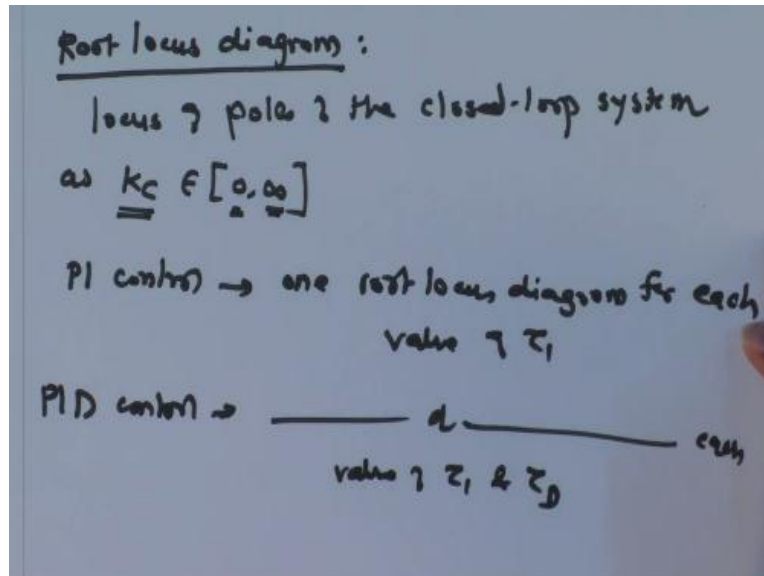 Root locus diagram :
locus of poles of the closed-loop system
as Kc ∈ [0, ∞]
PI control → one root locus diagram for each
value of τI
PID control → ——— d ——— each
value of τI & τD